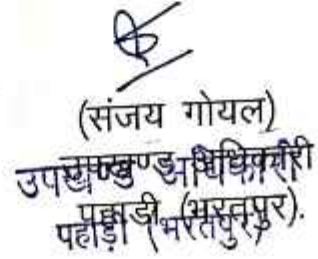 (संजय गोयल)
उपखण्ड अधिकारी
पहाडी (भरतपुर).
उपखण्ड अधिकारी
पहाड़ी (भरतपुर)